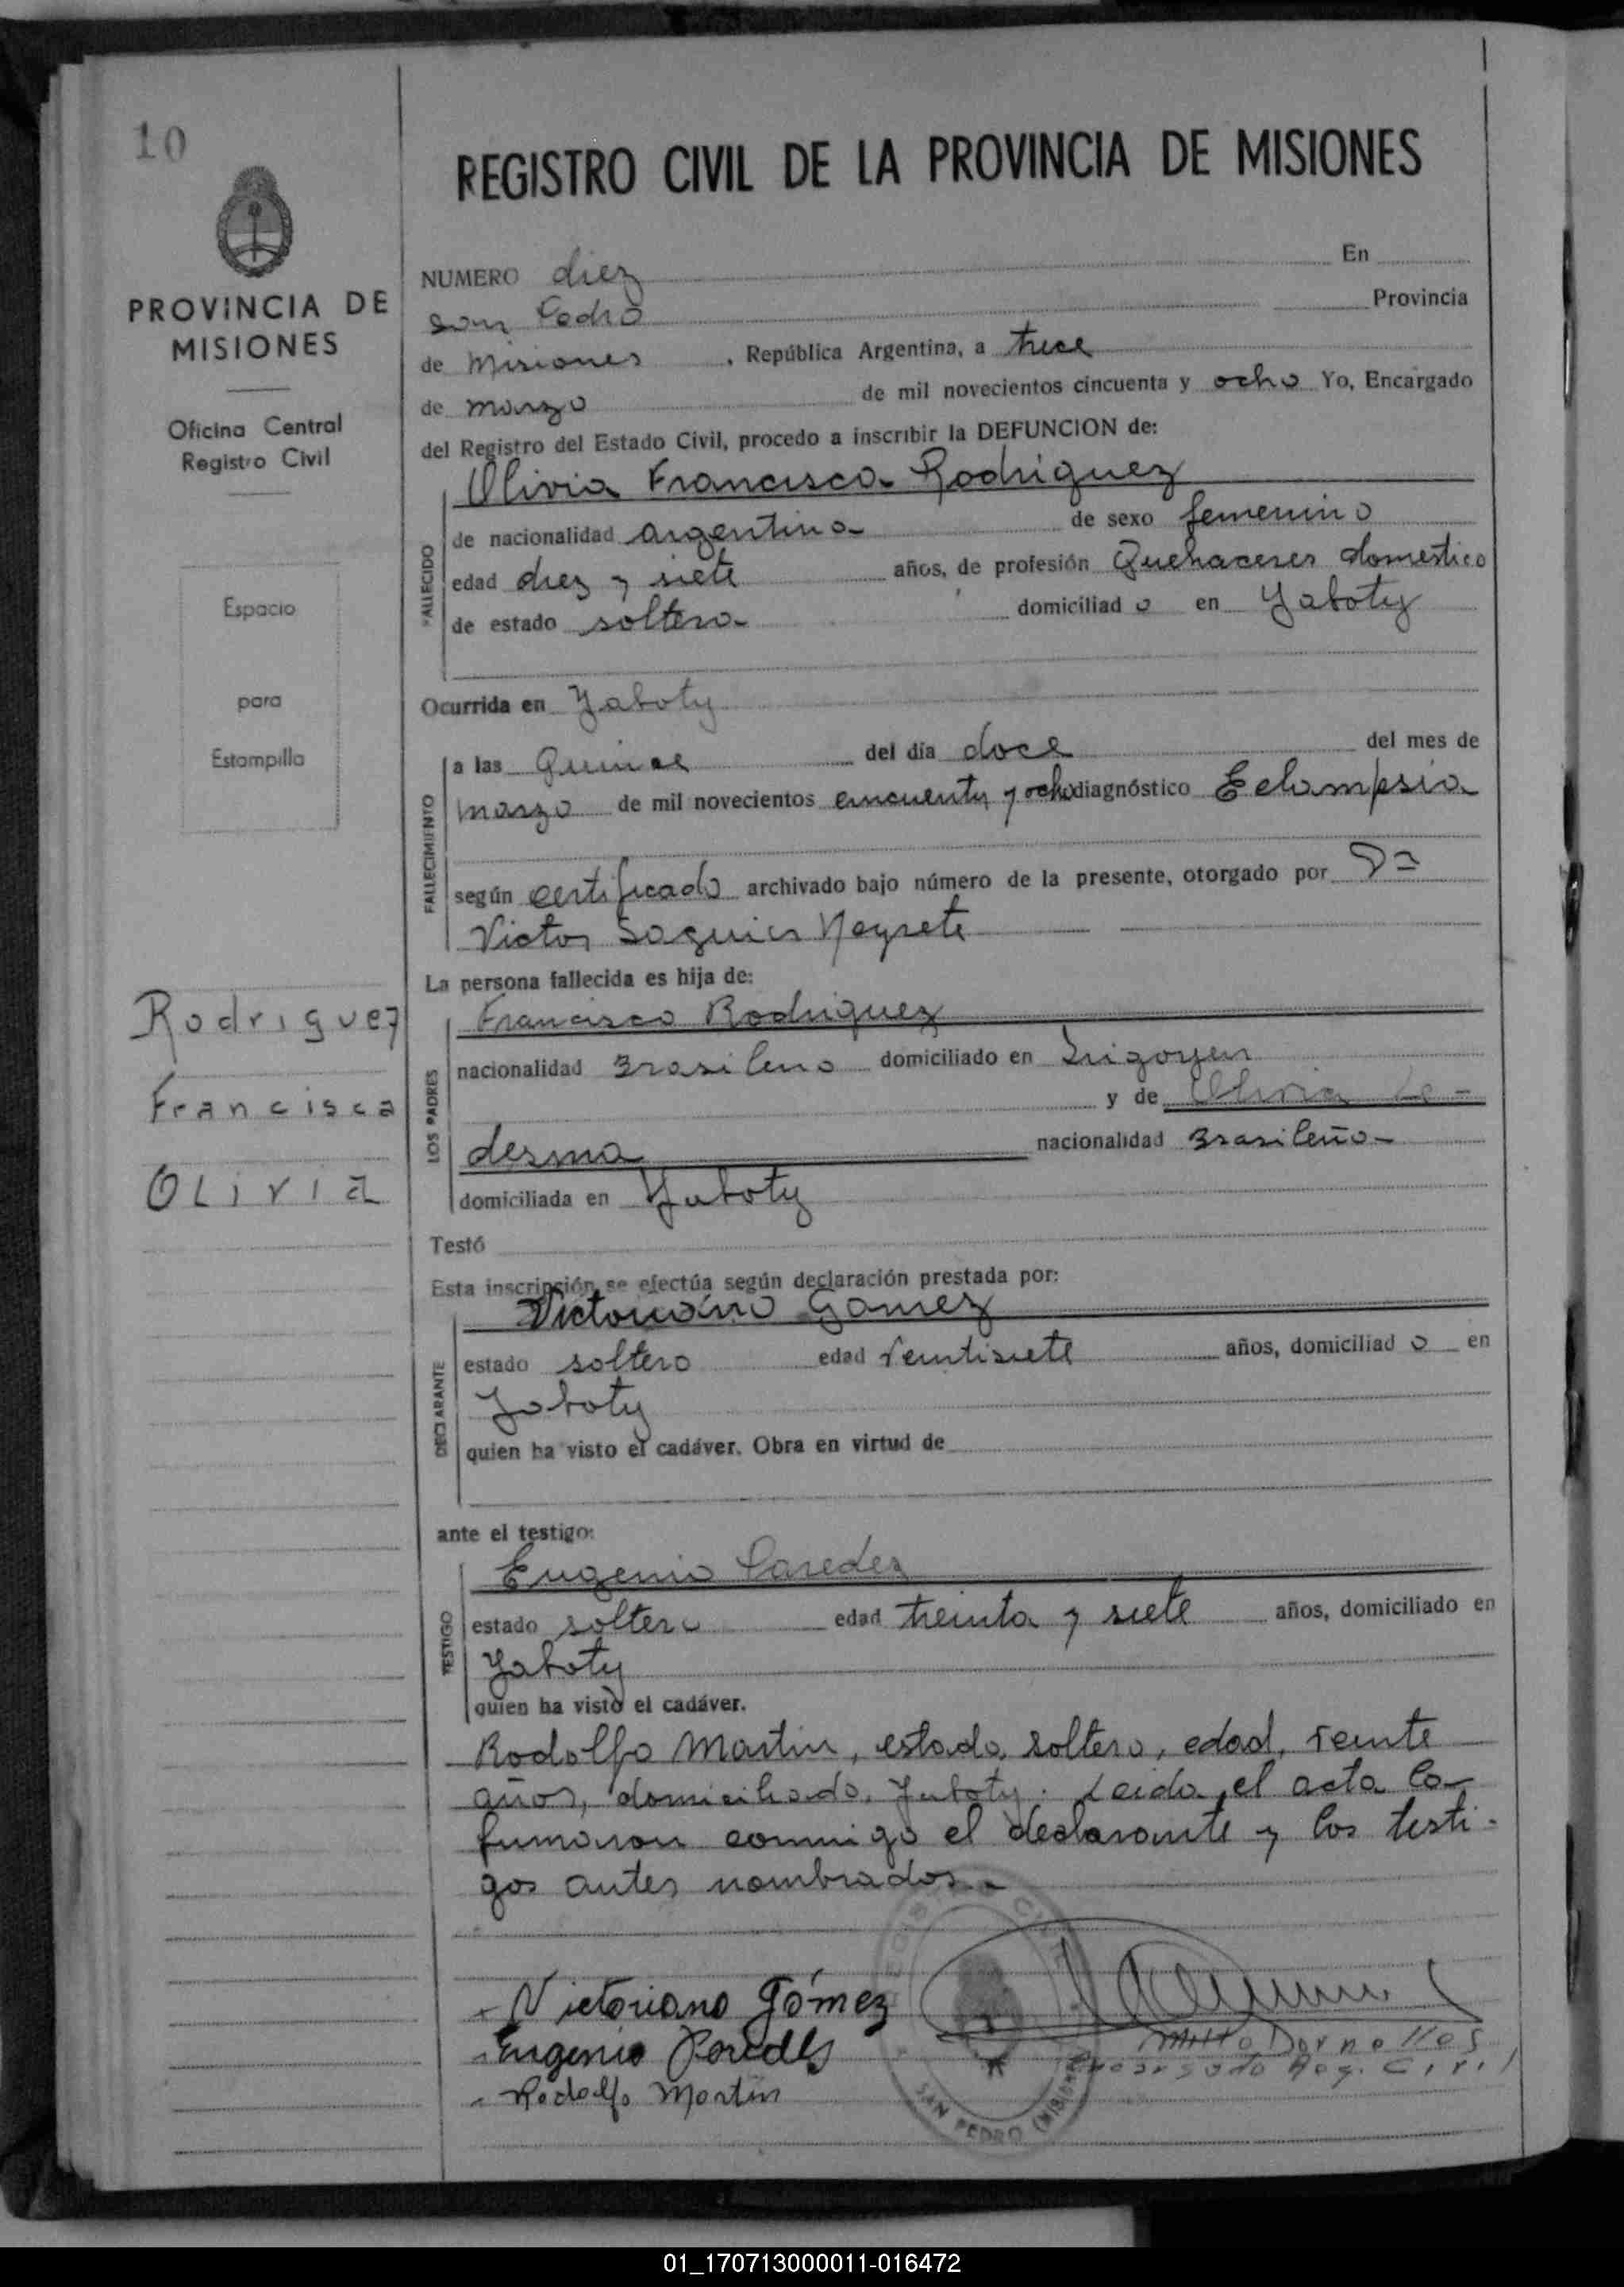 10
PROVINCIA DE
MISIONES
Oficina Central
Registro Civil
Espacio
para
Estampilla
Rodriguez
Francisca
Olivia
REGISTRO CIVIL DE LA PROVINCIA DE MISIONES
NUMERO diez En
San Pedro Provincia
de Misiones , República Argentina, a trece
de marzo de mil novecientos cincuenta y ocho Yo, Encargado
del Registro del Estado Civil, procedo a inscribir la DEFUNCION de:
Olivia Francisca Rodriguez
FALLECIDO
de nacionalidad argentina de sexo femenino
edad diez y siete años, de profesión Quehaceres domestico
de estado soltera domiciliad o en Yaboty
Ocurrida en Yaboty
FALLECIMIENTO
a las Quince del día doce del mes de
marzo de mil novecientos cincuenta y ocho diagnóstico Eclampsia
según certificado archivado bajo número de la presente, otorgado por
Victor
La persona fallecida es hija de:
Francisco Rodriguez
LOS PADRES
nacionalidad Brasileno domiciliado en Irigoyen
y de Olivia Le-
desma nacionalidad Brasileña
domiciliada en Yaboty
Testó
Esta inscripción se efectúa según declaración prestada por:
Victoriano Gomez
DECLARANTE
estado soltero edad veintisiete años, domiciliad o en
Yaboty
quien ha visto el cadáver. Obra en virtud de
ante el testigo:
Eugenio Paredes
TESTIGO
estado soltero edad treinta y siete años, domiciliado en
Yaboty
quien ha visto el cadáver.
Rodolfo Martin, estado, soltero, edad, veinte
años, domiciliado, Yaboty. Leida el acta la
firmaron conmigo el declarante y los testi-
gos antes nombrados.-
Victoriano Gómez
Eugenio Paredes
Rodolfo Martin
Dornelles
Encargado Reg. Civil
SAN PEDRO (MISIONES)
01_170713000011-016472